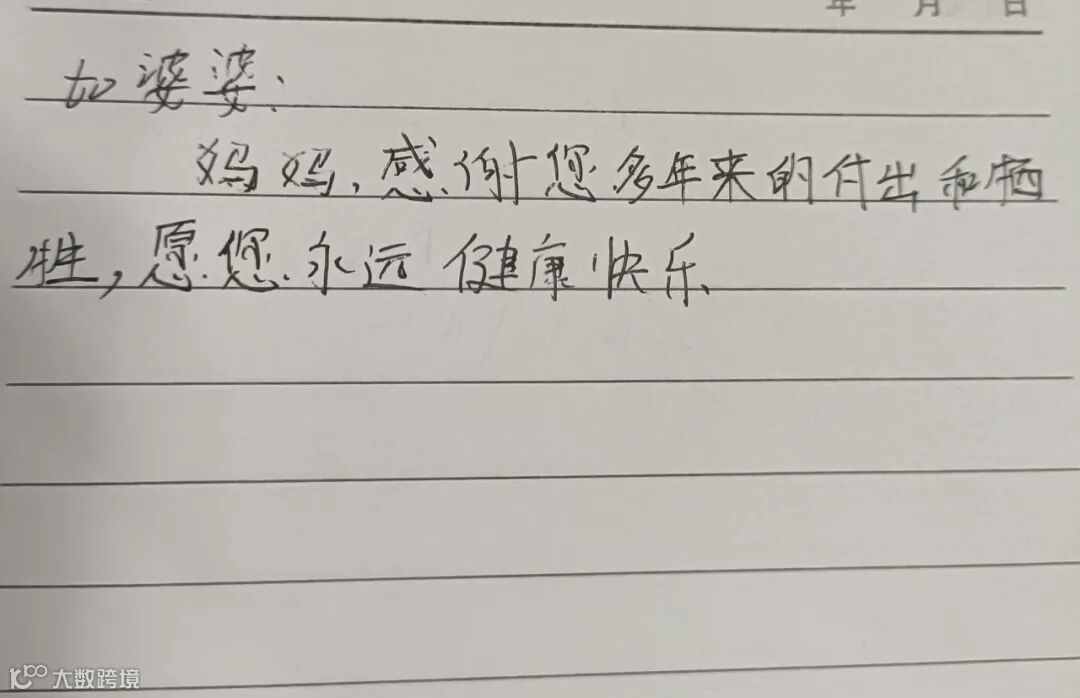 年 月 日
to 婆婆：
妈妈，感谢您多年来的付出和牺
牲，愿您永远健康快乐
大数跨境